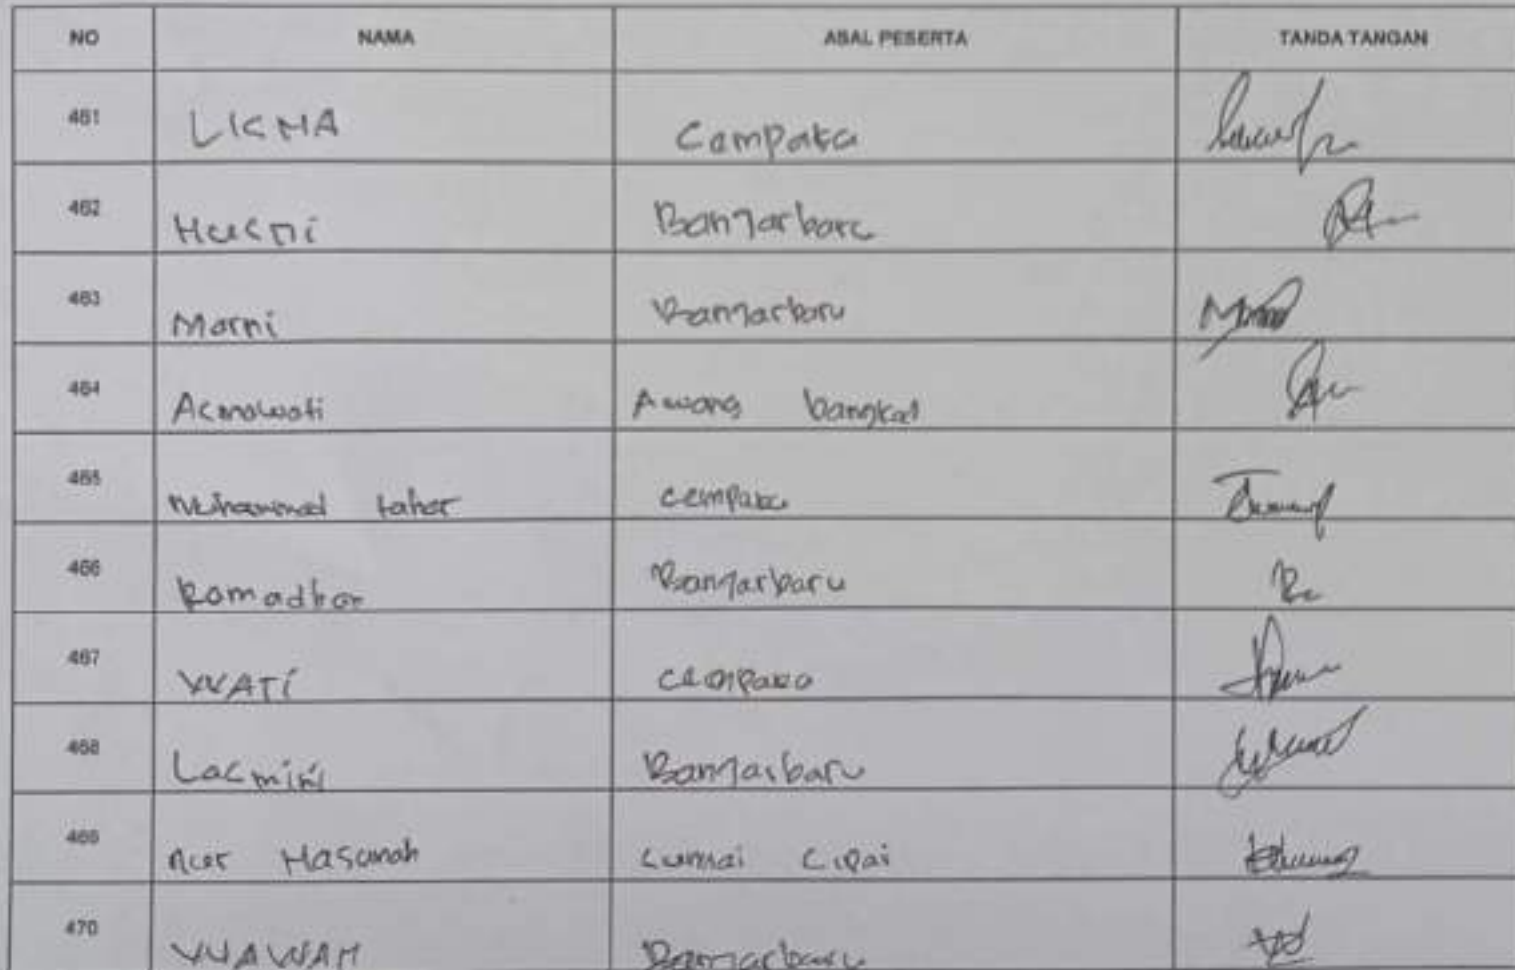 NO NAMA ASAL PESERTA TANDA TANGAN
461 LISMA Cempaka
462 Husni Banjarbaru
463 Marni Banjarbaru
464 Asmawati Awang bangkal
465 Muhammad taher Cempaka
466 Romadhon Banjarbaru
467 WATi Cempaka
468 Lasmini Banjarbaru
469 Nur Hasanah Sungai Sipai
470 WAWAN Banjarbaru